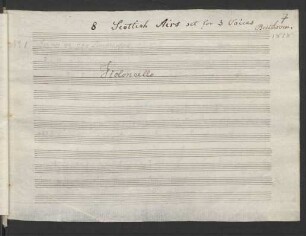 8 Scottish Airs set for 3 Voices
Beethoven.
Violoncello